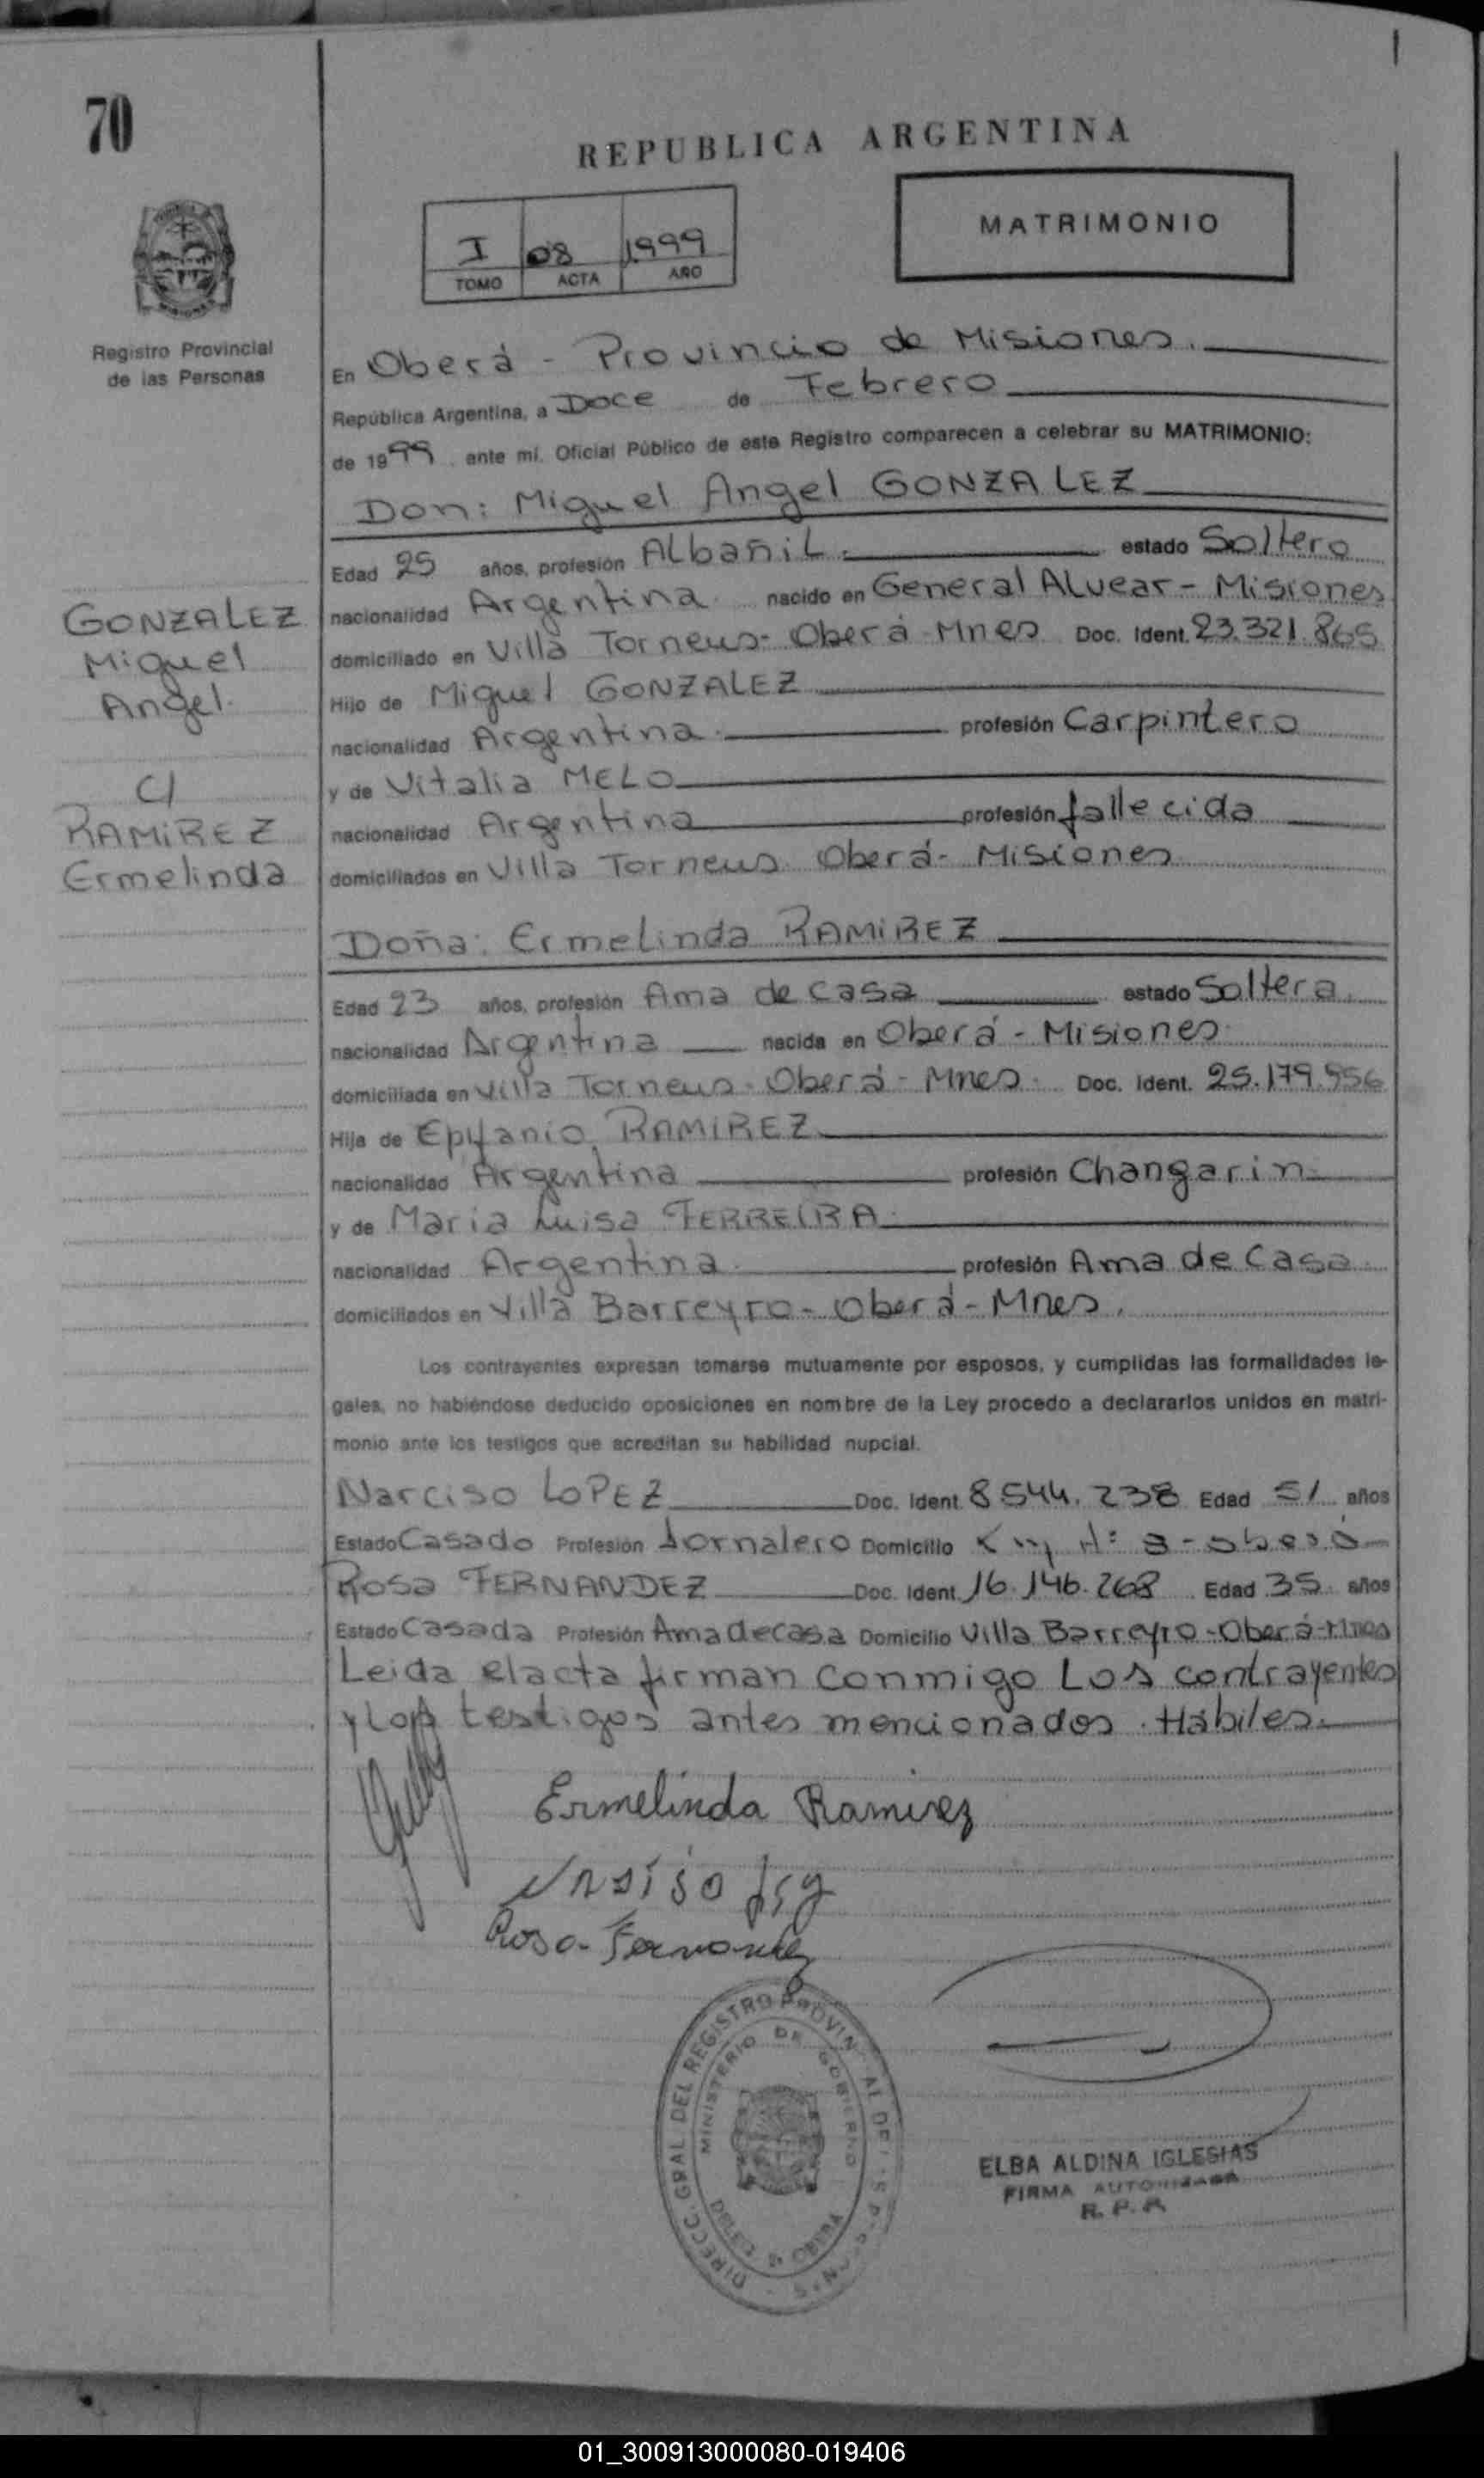 70
REPUBLICA ARGENTINA
MATRIMONIO
I 08 1999
TOMO ACTA AÑO
Registro Provincial
de las Personas
En Oberá - Provincia de Misiones.
República Argentina, a Doce de Febrero
de 1999 ante mí, Oficial Público de este Registro comparecen a celebrar su MATRIMONIO:
Don: Miguel Angel GONZALEZ
Edad 25 años, profesión Albañil. estado Soltero
nacionalidad Argentina nacido en General Alvear - Misiones
domiciliado en Villa Torneus - Oberá - Mnes Doc. Ident. 23.321.865
Hijo de Miguel GONZALEZ
nacionalidad Argentina. profesión Carpintero
y de Vitalia MELO
nacionalidad Argentina profesión fallecida
domiciliados en Villa Torneus. Oberá - Misiones
GONZALEZ
Miguel
Angel.
C/
RAMIREZ
Ermelinda
Doña: Ermelinda RAMIREZ
Edad 23 años, profesión Ama de casa estado Soltera.
nacionalidad Argentina nacida en Oberá - Misiones.
domiciliada en Villa Torneus - Oberá - Mnes. Doc. Ident. 25.179.956
Hija de Epifanio RAMIREZ
nacionalidad Argentina profesión Changarin
y de Maria Luisa FERREIRA
nacionalidad Argentina. profesión Ama de Casa.
domiciliados en Villa Barreyro - Oberá - Mnes.
Los contrayentes expresan tomarse mutuamente por esposos, y cumplidas las formalidades le-
gales, no habiéndose deducido oposiciones en nombre de la Ley procedo a declararlos unidos en matri-
monio ante los testigos que acreditan su habilidad nupcial.
Narciso LOPEZ Doc. Ident. 8.544.238 Edad 51 años
Estado Casado Profesión Jornalero Domicilio Km Nº 8 - Oberá
Rosa FERNANDEZ Doc. Ident. 16.146.268 Edad 35 años
Estado Casada Profesión Ama de casa Domicilio Villa Barreyro - Oberá - Mnes
Leida el acta firman conmigo Los contrayentes
y los testigos antes mencionados. Hábiles.
Ermelinda Ramirez
Rosa Fernandez
DIRECC. GRAL DEL REGISTRO PROVINCIAL DE LAS PERSONAS
MINISTERIO DE GOBIERNO
OBERA
ELBA ALDINA IGLESIAS
FIRMA AUTORIZADA
R. P. P.
01_300913000080-019406